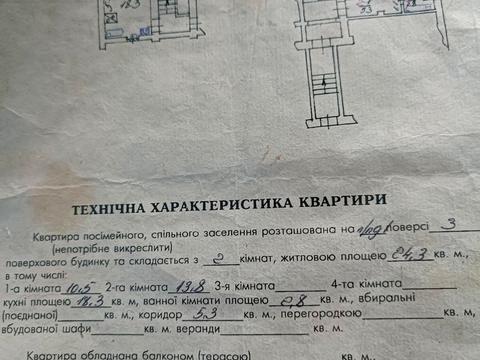 5 18.3
9.3
ТЕХНІЧНА ХАРАКТЕРИСТИКА КВАРТИРИ
Квартира посімейного, спільного заселення розташована на поверсі 3
(непотрібне викреслити)
поверхового будинку та складається з 2 кімнат, житловою площею 24,3 кв. м.,
в тому числі:
1-а кімната 10,5 2-га кімната 13,8 3-я кімната 4-та кімната
кухні площею 18,3 кв. м, ванної кімнати площею 2,8 кв. м., вбиральні
(поєднаної) кв. м., коридор 5,3 кв. м., перегородкою кв. м,
вбудованої шафи кв. м. веранди кв. м.
Квартира обладнана балконом (терасою) кв. м.